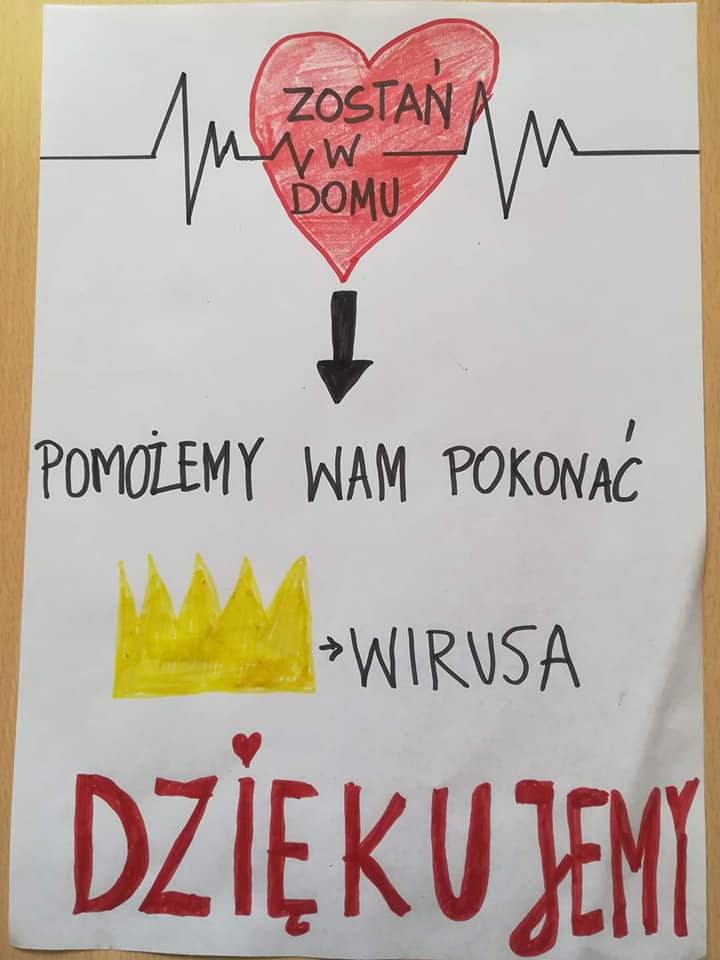 ZOSTAŃ
W
DOMU
POMOŻEMY WAM POKONAĆ
WIRUSA
DZIĘKUJEMY